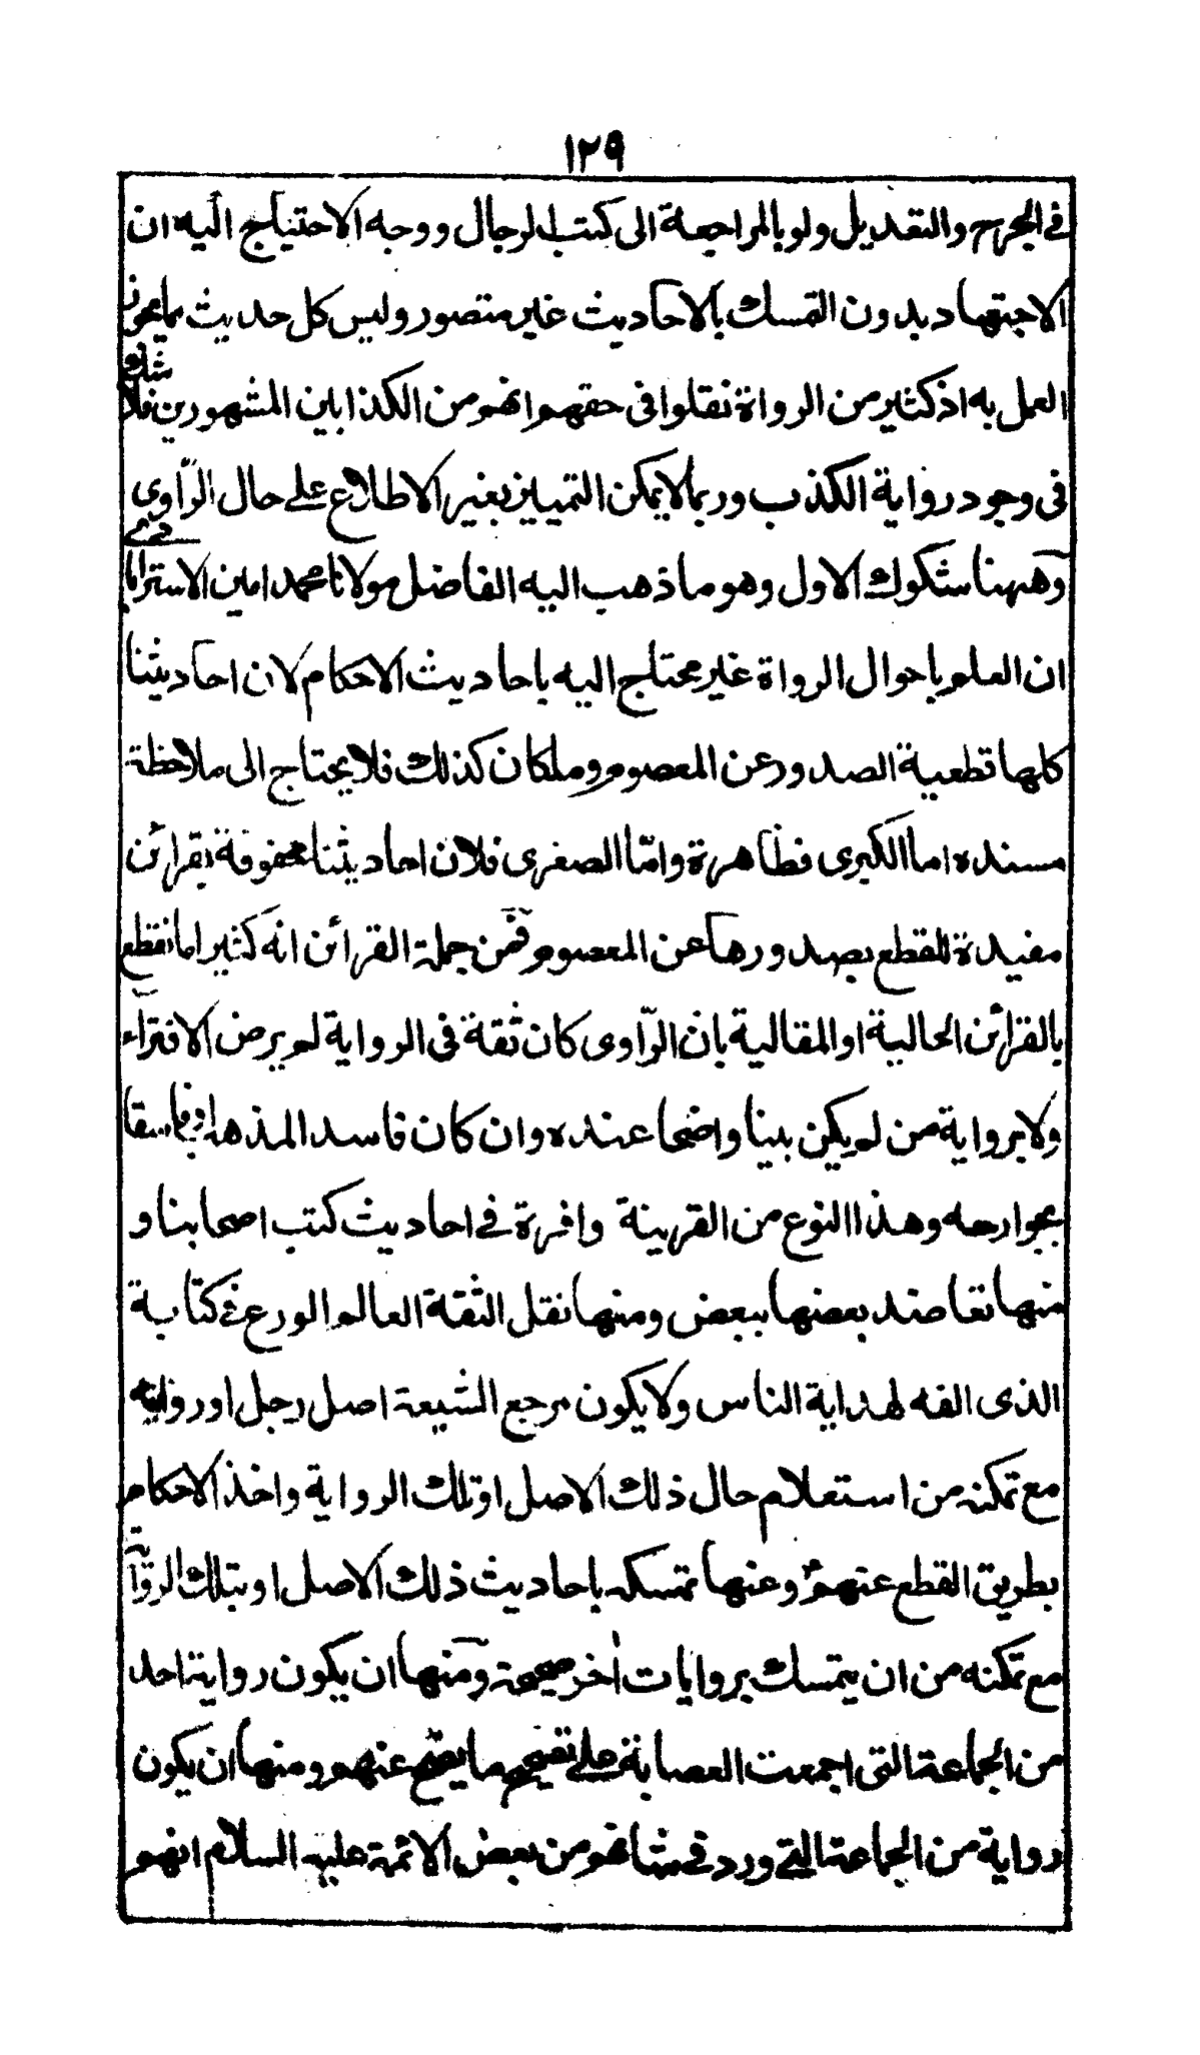 ١٢٩
في الجرح والتعديل ولو بالمراجعة الى كتب الرجال ووجه الاحتياج اليه ان
الاجتهاد بدون التمسك بالاحاديث غير متصور وليس كل حديث مما يجوز
العمل به اذ كثير من الرواة نقلوا فى حقهم انهم من الكذابين المشهورين فلا شك
فى وجود رواية الكذب وربما لا يمكن التمييز بغير الاطلاع على حال الراوى
وههنا شكوك الاول وهو ما ذهب اليه الفاضل مولانا محمد امين الاسترابادي
ان العلم باحوال الرواة غير محتاج اليه باحاديث الاحكام لان احاديثنا
كلها قطعية الصدور عن المعصوم وما كان كذلك فلا يحتاج الى ملاحظة
سنده اما الكبرى فظاهرة وامّا الصغرى فلان احاديثنا محفوفة بقرائن
مفيدة للقطع بصدورها عن المعصوم فمن جملة القرائن انه كثيرا ما نقطع
بالقرائن الحالية او المقالية بان الرّاوى كان ثقة فى الرواية لم يرض الافتراء
ولا برواية من لم يكن بينا واضحا عنده وان كان فاسد المذهب او فاسقا
بجوارحه وهذا النوع من القرينة وافرة في احاديث كتب اصحابنا و
منها تعاضد بعضها ببعض ومنها نقل الثقة العالم الورع في كتابه
الذى الفه لهداية الناس ولا يكون مرجع الشيعة اصل رجل او روايته
مع تمكنه من استعلام حال ذلك الاصل او تلك الرواية واخذ الاحكام
بطريق القطع عنهم ع وعنها تمسكه باحاديث ذلك الاصل او بتلك الرواية
مع تمكنه من ان يتمسك بروايات اخر صحيحة ومنها ان يكون رواية احد
من الجماعة التى اجمعت العصابة على تصحيح ما يصح عنهم ومنها ان يكون
رواية من الجماعة التي ورد في شانهم من بعض الائمة عليه السلام انهم